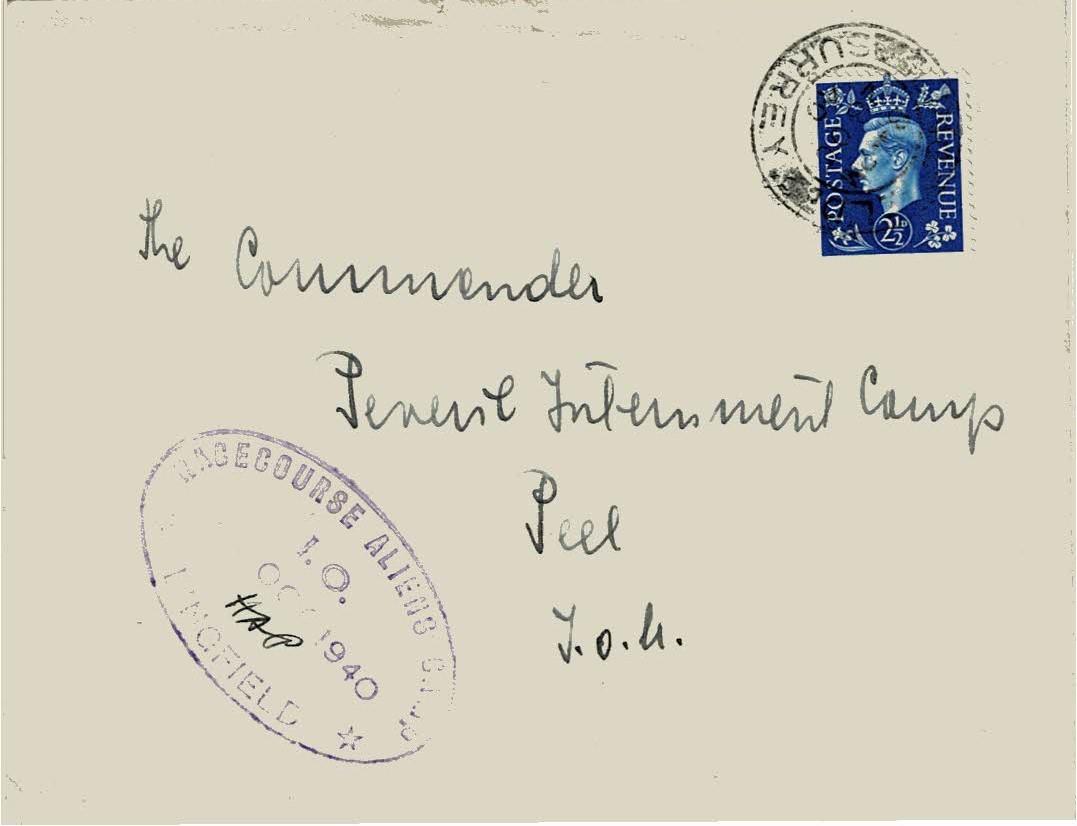 SURREY
POSTAGE
REVENUE
2½D
The Commander
Peveril Internment Camp
Peel
I.o.M.
RACECOURSE ALIENS CAMP
I.O.
OCT 1940
HAP
LINGFIELD